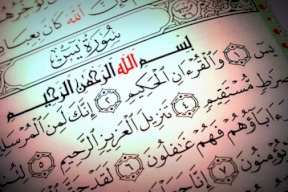 الله كان بعبا
سورة يس
بسم الله الرحمن الرحيم
يس ۝١ والقرءان الحكيم ۝٢ إنك لمن المرسلين
صرط مستقيم ۝٤ تنزيل العزيز الرحيم
ءاباؤهم فهم غفلون ۝٦ لقد حق
يؤمنون ۝٧